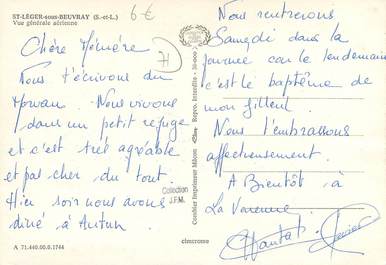 ST-LÉGER-sous-BEUVRAY (S.-et-L.)
Vue générale aérienne
6 €
71
Chère Mémère
Nous t'écrivons du
Morvan. Nous vivons
dans un petit refuge
et c'est très agréable
et pas cher du tout.
Hier soir nous avons
diné à Autun
Collection
J.F.M.
A 71.440.00.0.1744
cimcrome
Combier Imprimeur Mâcon
Repro. Interdite
Nous rentrerons
Samedi dans la
journée car le lendemain
c'est le baptême de
mon filleul
Nous t'embrassons
affectueusement
A Bientôt à
La Varenne
Chantal